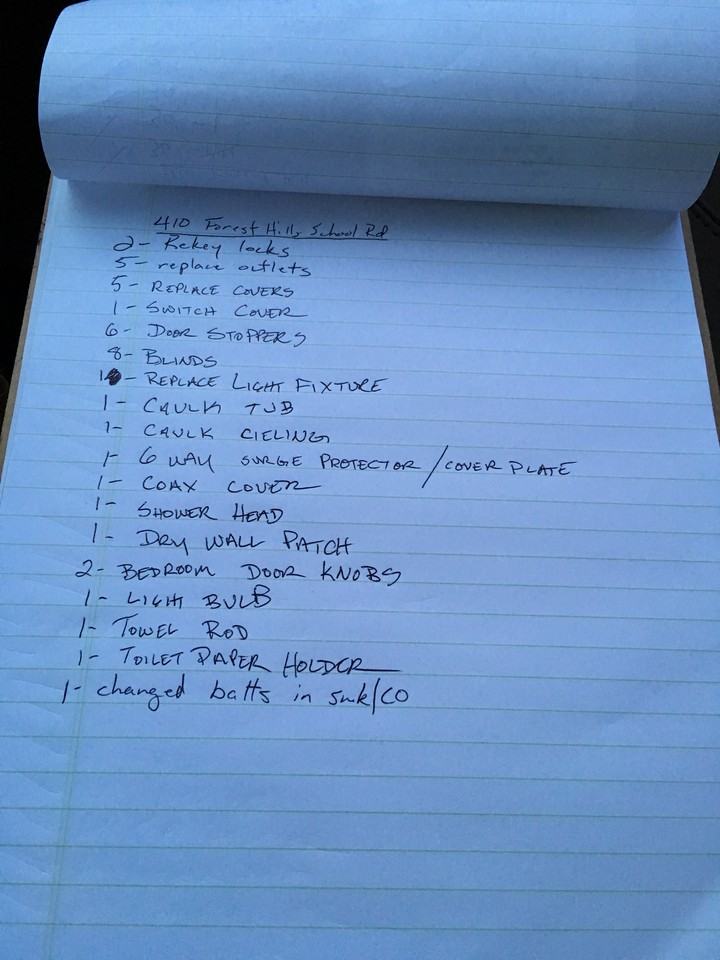 410 Forest Hills School Rd
2- Rekey locks
5- replace outlets
5- REPLACE COVERS
1- SWITCH COVER
6- DOOR STOPPERS
8- BLINDS
1 - REPLACE LIGHT FIXTURE
1- CAULK TUB
1- CAULK CIELING
1- 6 WAY SURGE PROTECTOR / COVER PLATE
1- COAX COVER
1- SHOWER HEAD
1- DRY WALL PATCH
2- BEDROOM DOOR KNOBS
1- LIGHT BULB
1- TOWEL ROD
1- TOILET PAPER HOLDER
1- changed batts in smk/CO